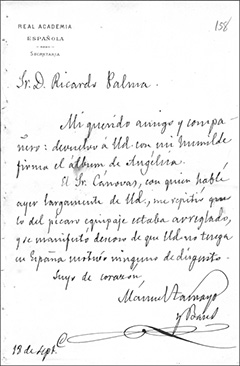 158
REAL ACADEMIA
ESPAÑOLA
Secretaría
Sr. D. Ricardo Palma.
Mi querido amigo y compa-
ñero: devuelvo a Ud con mi humilde
firma el álbum de Angélica.
El Sr. Cánovas, con quien hablé
ayer largamente de Ud, me repitió que
lo del pícaro equipaje estaba arreglado,
y se manifestó deseoso de que Ud no tenga
en España motivo ninguno de disgusto.
Suyo de corazón,
Manuel Tamayo
y Baus
19 de sept.